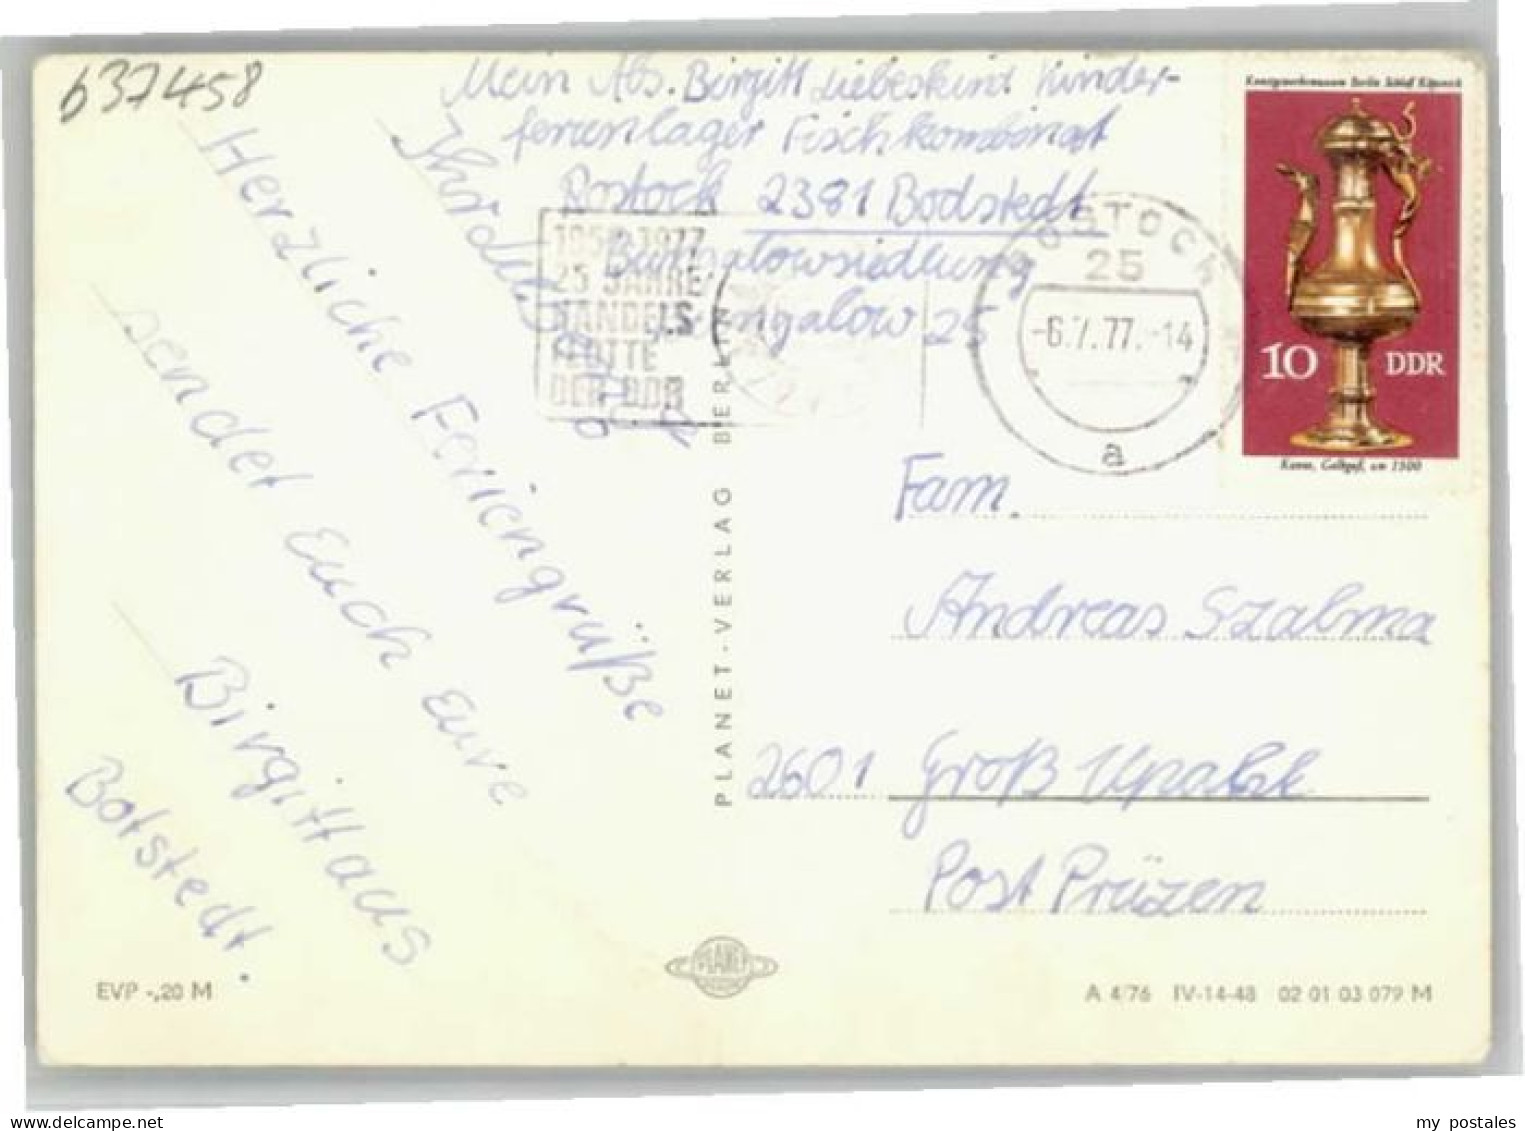 637458
Mein Abs. Birgitt Liebeskind Kinder-
ferienlager Fischkombinat
Rostock 2381 Bodstedt
Bungalowsiedlung
Bungalow 25
Herzliche Feriengrüße
sendet Euch Eure
Birgitt aus
Botstedt.
1952-1977
25 JAHRE
HANDELS
FLOTTE
DER DDR
ROSTOCK
25
-6.7.77.-14
a
Kunstgewerbemuseum Berlin Schloß Köpenick
10 DDR
Kanne, Gelbguß, um 1500
PLANET-VERLAG BERLIN
Fam.
Andreas Szabma
2601 Groß Upahl
Post Prüzen
EVP -,20 M
PLANET
A 4/76 IV-14-48 02 01 03 079 M
my postales